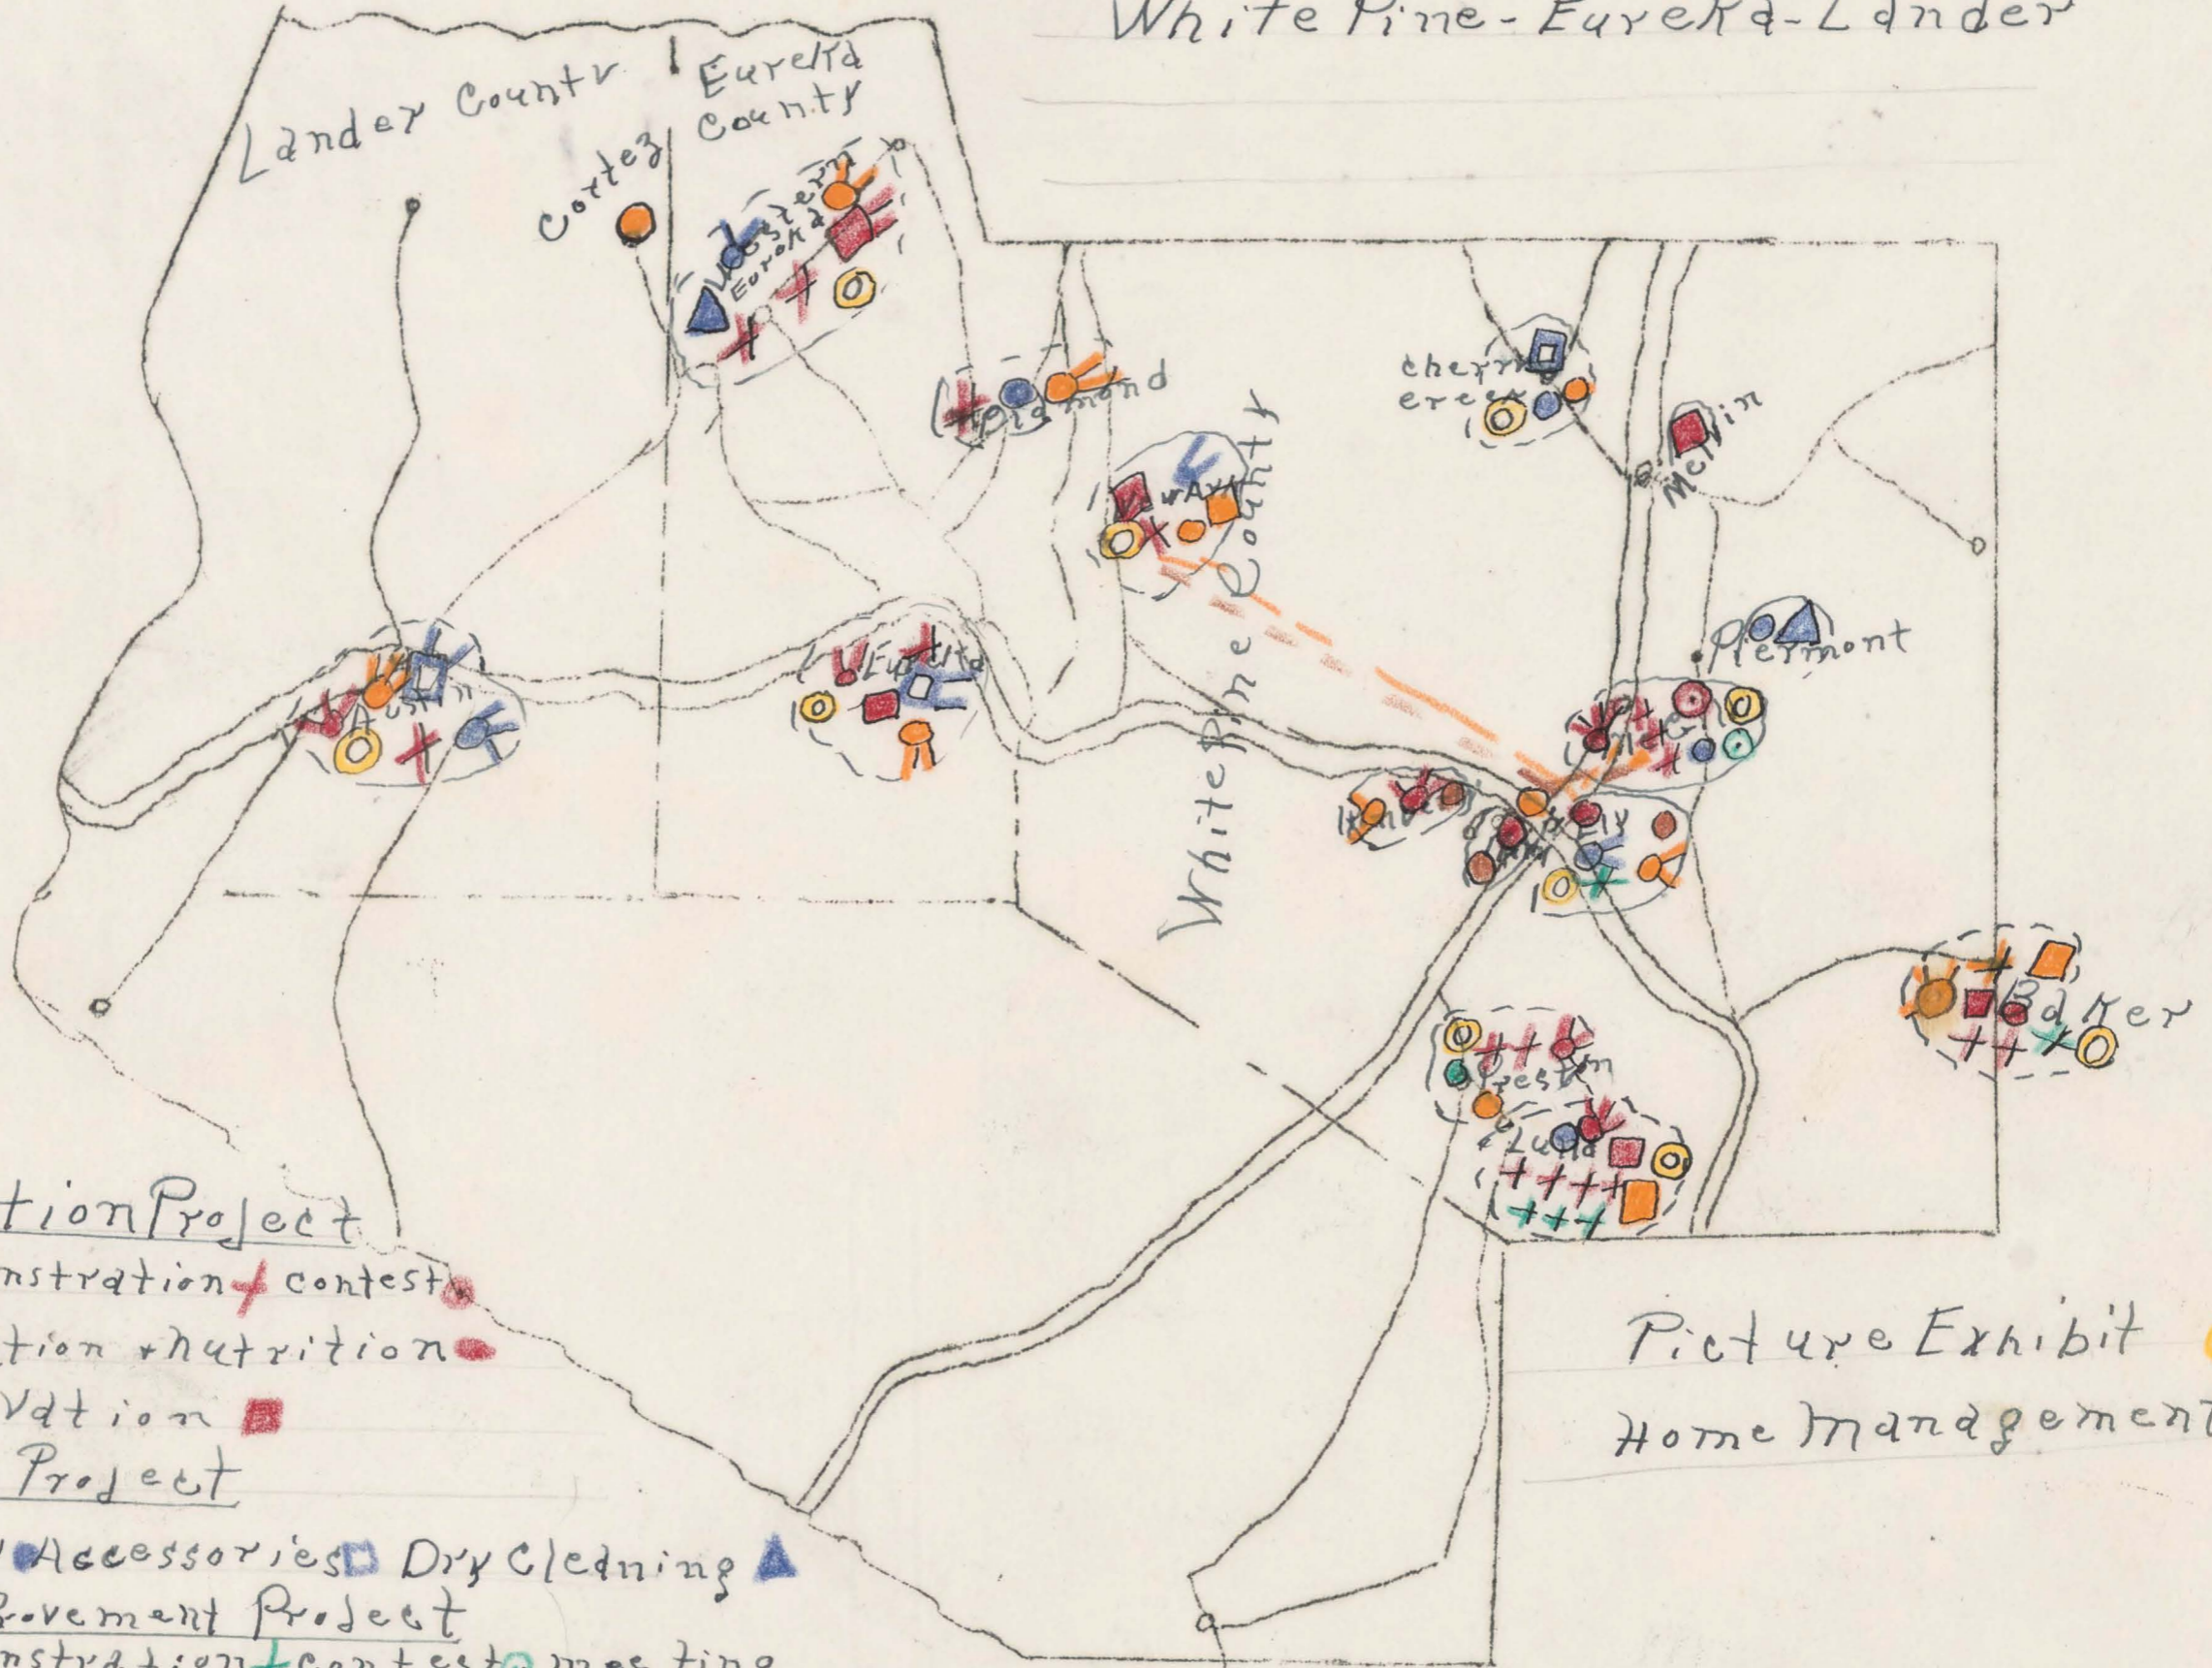 White Pine-Eureka-Lander
Lander County
Eureka
County
Cortez
Western
Eureka
Diamond
Cherry
Creek
Melvin
White Pine County
Piermont
Austin
Eureka
Ely
Baker
Preston
Lund
tion Project
nstration contest
tion + nutrition
vation
Project
Accessories Dry Cleaning
rovement Project
nstration contest meeting
Picture Exhibit
Home Management